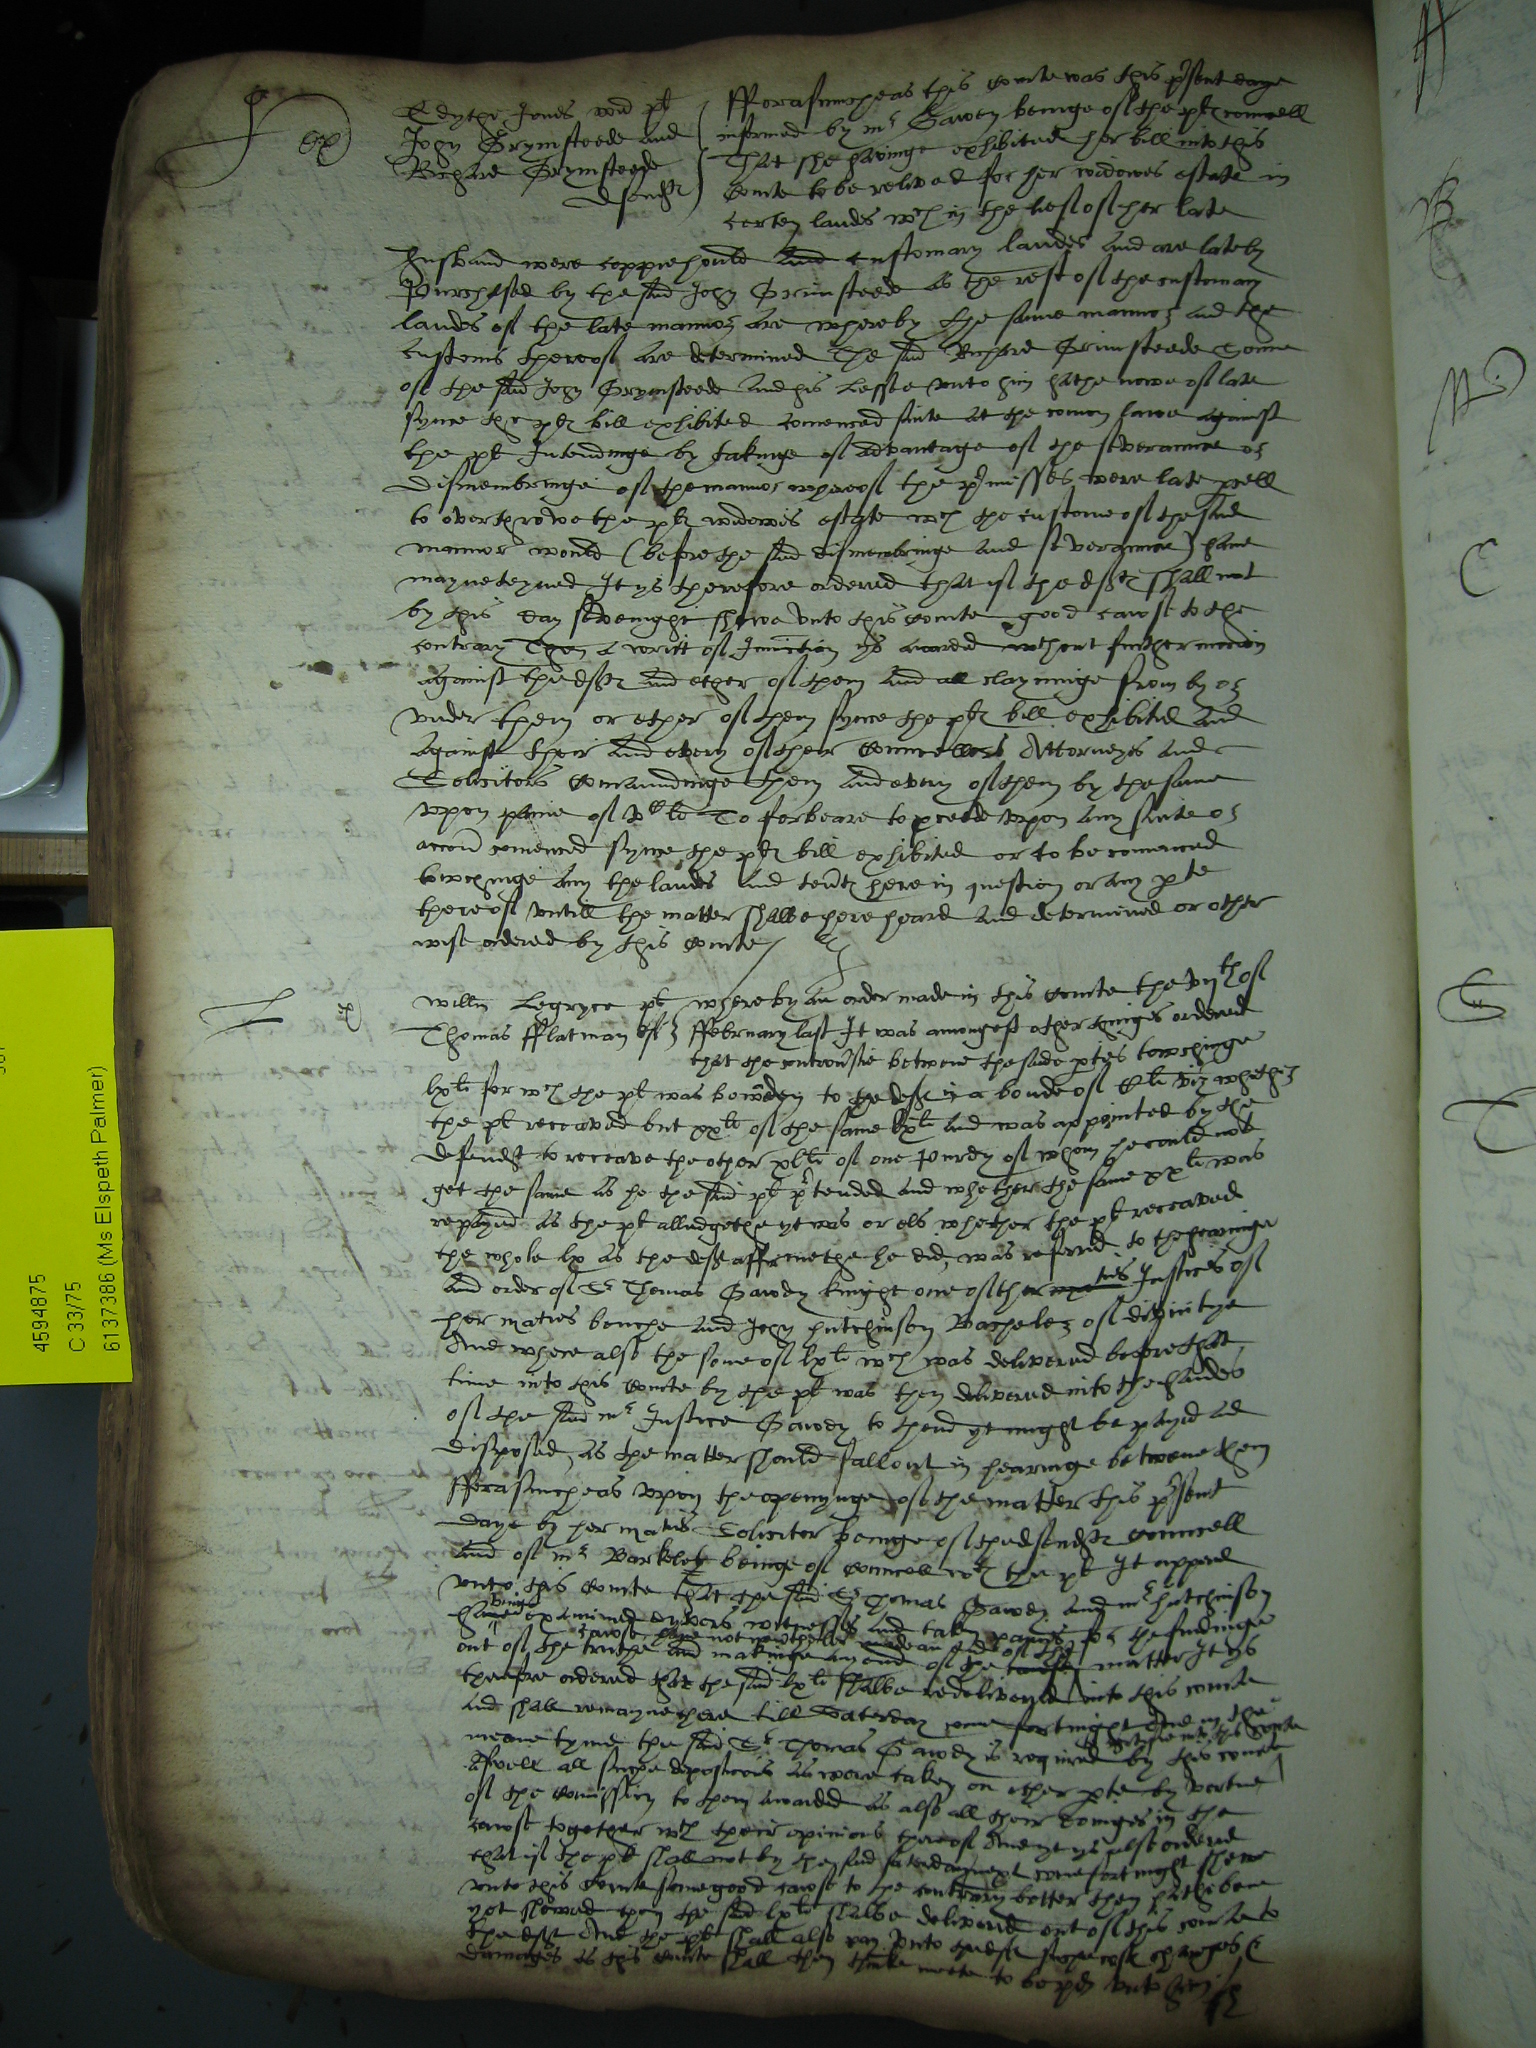 Edythe Jones wid pl
John Grymsteede and
Richard Grymsteede
defendtes
fforasmuche as this Courte was this pʳsent daye
informed by mʳ Gawdy beinge of the pltes councell
That she havinge exhibited her bill into this
Courte to be relived for her widowes estate in
certen landes wch in the lief of her late
husband were coppiehould and customary landes and are lately
Purchased by the said John Grimsteede as the rest of the customary
landes of the late mannor are whereby the same mannor and the
customs thereof are determined The said Richard Grimsteede Sonne
of the said John Grymsteede and his Lessee unto him hathe nowe of late
synce the pltes bill exhibited comenced suite at the comon lawe against
the pl Intendinge by takinge of advantage of the severaunce or
dismembringe of the mannor whereof the pʳmisses were late pcell
to overthrowe the pltes widowes estate wch the custome of the said
mannor would (before the said dismembringe and severaunce) have
mayneteyned It ys therefore ordered that if the deftes shall not
by this day sevenight shewe unto this Courte good cawse to the
contrary Then a writt of Iniunction ys awarded without further motion
against the deftes and ether of them And all clayminge from by or
under them or ether of them synce the pltes bill exhibited And
against their and every of their Councellors Attorneyes and
Solicitors Comaundinge them and every of them by the same
upon paine of To forbeare to pceede upon any suite or
accon comenced synce the pltes bill exhibited or to be comenced
towchinge any the landes and tentes here in question or any pte
thereof untill the matter shalbe here heard and determined or other
wise ordered by this Courte
Willm Legryce pl
Thomas fflatman deft
whereby an order made in this Courte the vijth of
ffebruary last It was amongest other thinges ordered
that the controusie betwene the saide pties towchinge
lxli for wch the pl was bownden to the deft in a bonde of Cli viz whether
the pl receaved but xxli of the same lxli and was appointed by the
defendt to receave the other xlli of one Purdy of whom he could not
get the same as he the said pl pʳtended and whether the same xxli was
repayed as the pl alludgethe yt was or els whether the pl receaved
the whole lx as the deft affirmethe he did, was referred to the hearinge
and order of Sr Thomas Gawdy knight one of ther maties Justices of
her maties benche and John hutchinson Bacheler of divinitye
And where also the some of lxli wch was delivered before that
time into this Courte by the pl was then delivered into the handes
of the said mr Justice Gawdy to thend yt might be payed and
disposed, as the matter should fall out in hearinge betwene them
fforasmuche as upon the openynge of the matter this pʳsent
daye by her maties Solicitor beinge of the defendtes Councell
and of mr Barkeley beinge of Councell wth the pl It appered
unto this Courte that the said Sr Thomas Gawdy and mr hutchinson
havinge examined dyvers witnesses and taken paines for the findinge
cawse have not made an end of the
out of the truthe and makinge an end of the matter It ys
therefore ordered that the said lxli shalbe redelivered into this Courte
and shall remayne here till Saterday come fortnight And in the
meane tyme the said Sr Thomas Gawdy is required by this Courte
certifie into this Courte
Aswell all suche deposicons as were taken on ether pte by vertue
of the Comission to them awarded as also all their doinges in the
cawse together wth their opinions thereof And yt ys also ordered
that if the pl shall not by the said saterday next come fortnight shewe
unto this Courte some good cawse to the contrary better then hathe bene
yet shewed then the said lxli shalbe delivered out of this Courte to
the deft And the pl shall also pay unto the deft suche cost charges &
damages as this Courte shall then thinke meete to be pd unto him
4594875
C 33/75
6137386 (Ms Elspeth Palmer)